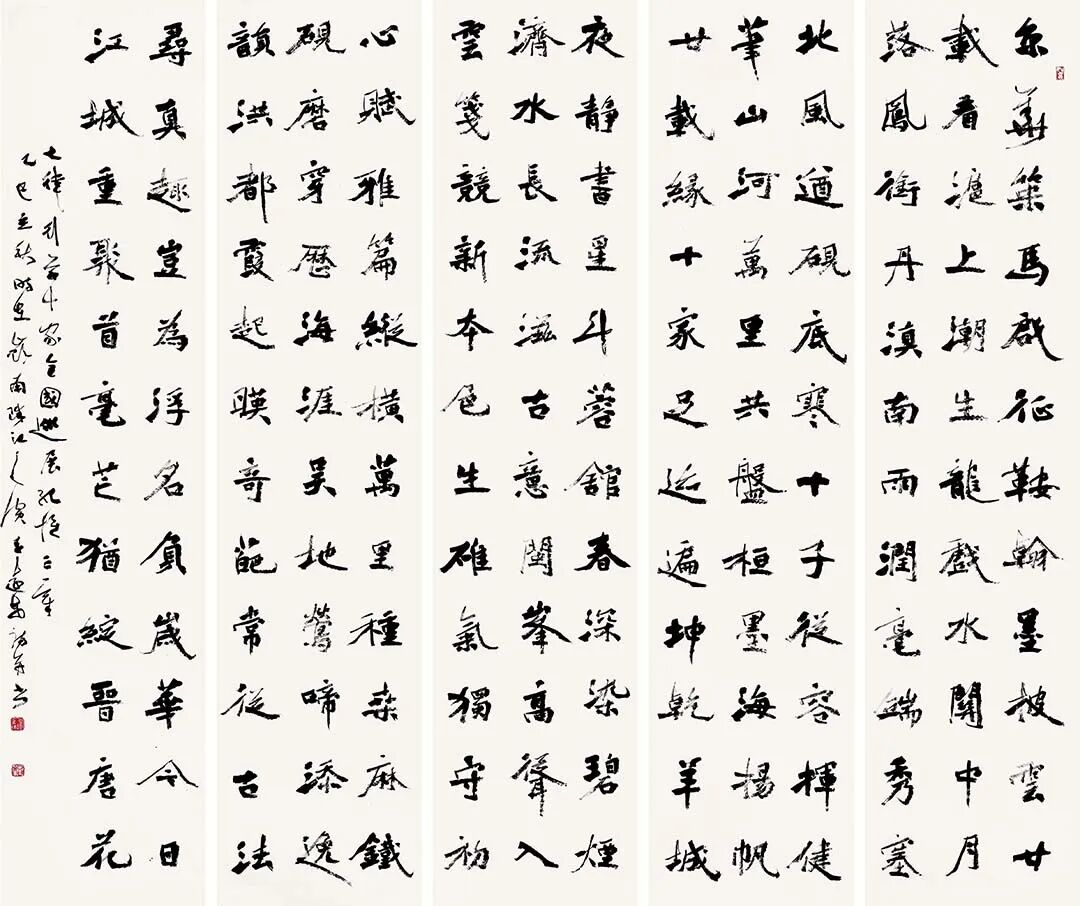 京華築馬啟征鞍翰墨披雲廿
載看滬上潮生龍戲水關中月
落鳳銜丹滇南雨潤毫端秀塞
北風遒硯底寒十子從容揮健
筆山河萬里共盤桓墨海揚帆
廿載緣十家足迹遍坤乾羊城
夜靜書星斗蓉館春深染碧煙
濟水長流滋古意閩峯高聳入
雲箋競新本色生雄氣獨守初
心賦雅篇縱橫萬里種桑麻鐵
硯磨穿歷海涯吳地鶯啼添逸
韻洪都霞起暎奇葩常從古法
尋真趣豈為浮名負歲華今日
江城重聚首毫芒猶綻晉唐花
七律 十家全國巡展
乙巳立秋時 嶺南珠江之濱